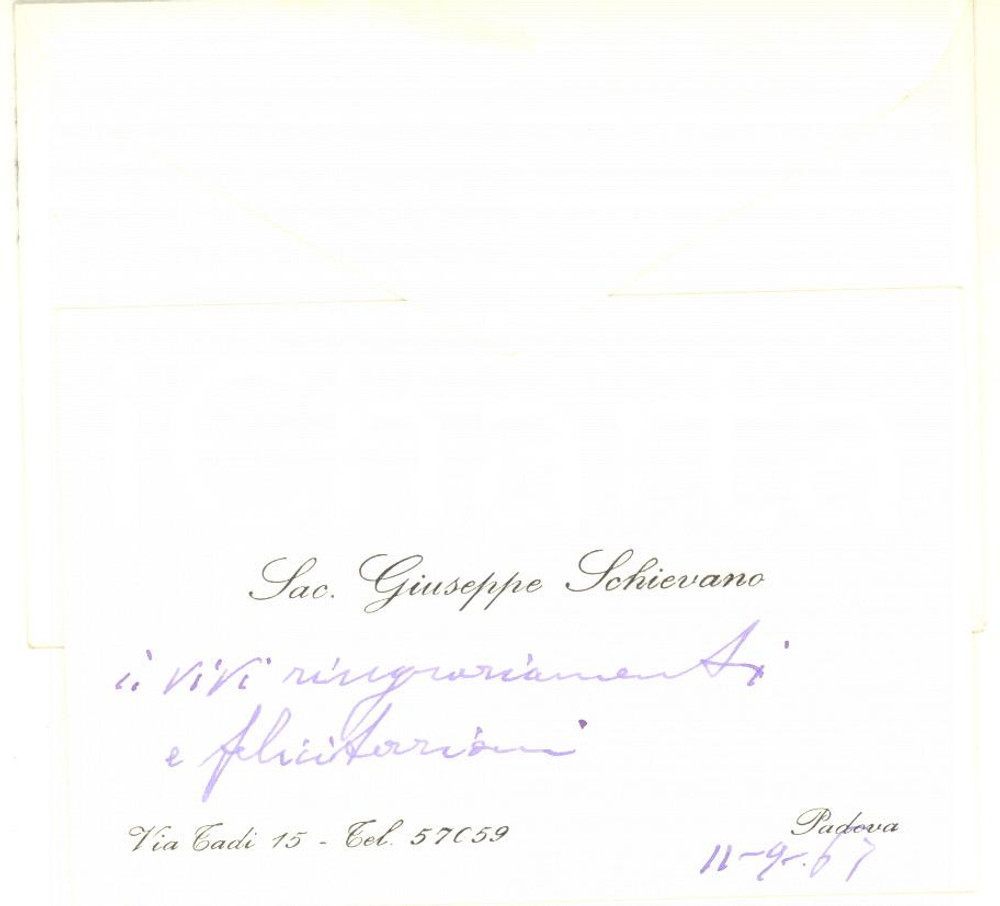 Sac. Giuseppe Schievano
i vivi ringraziamenti
e felicitazioni
Via Tadi 15 - Tel. 57059
Padova
11-9-67